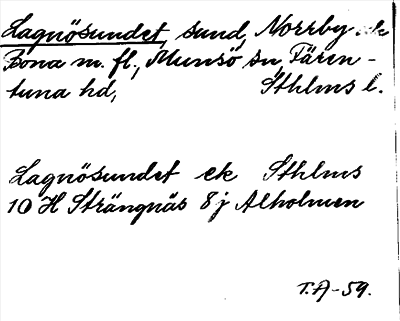 Lagnösundet, sund, Norrby ek
Bona m. fl., Munsö sn, Fären-
tuna hd, Sthlms l.
Lagnösundet ek Sthlms
10 H Strängnäs 8j Alholmen
T.A-59.